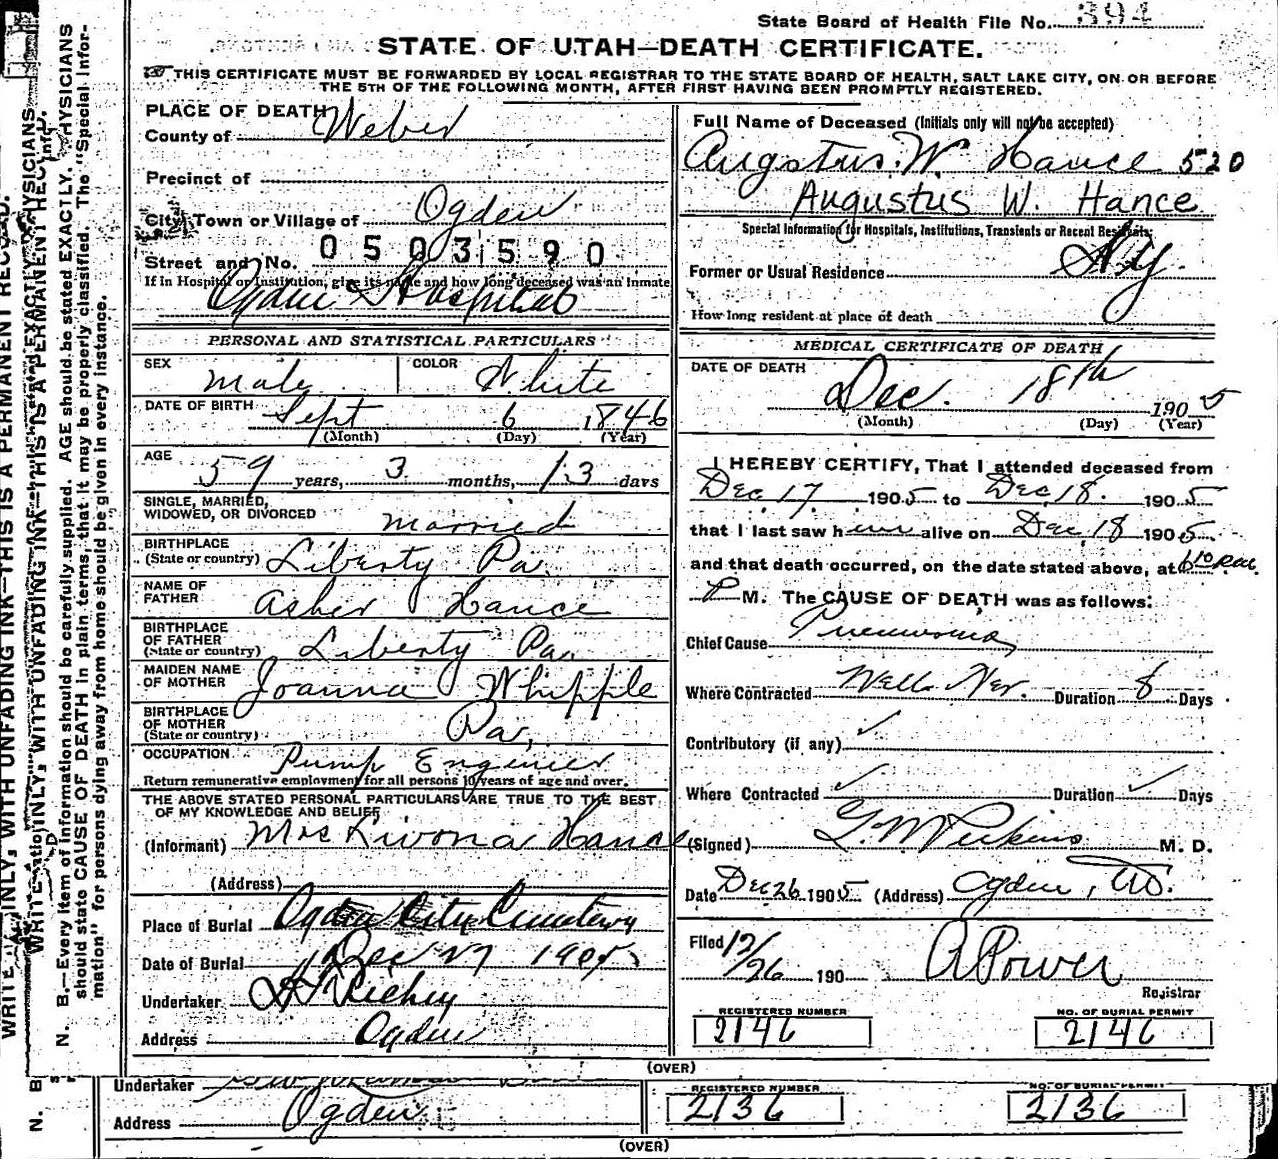 State Board of Health File No. 394
STATE OF UTAH—DEATH CERTIFICATE.
THIS CERTIFICATE MUST BE FORWARDED BY LOCAL REGISTRAR TO THE STATE BOARD OF HEALTH, SALT LAKE CITY, ON OR BEFORE
THE 5TH OF THE FOLLOWING MONTH, AFTER FIRST HAVING BEEN PROMPTLY REGISTERED.
PLACE OF DEATH
County of Weber
Precinct of
City, Town or Village of Ogden
0503590
Street and No.
If in Hospital or Institution, give its name and how long deceased was an inmate
Ogden Hospital
PERSONAL AND STATISTICAL PARTICULARS
SEX Male COLOR White
DATE OF BIRTH Sept 6 1846
(Month) (Day) (Year)
AGE 59 years, 3 months, 13 days
SINGLE, MARRIED,
WIDOWED, OR DIVORCED married
BIRTHPLACE
(State or country) Liberty Pa.
NAME OF
FATHER Asher Hance
BIRTHPLACE
OF FATHER
(State or country) Liberty Pa.
MAIDEN NAME
OF MOTHER Joanna Whipple
BIRTHPLACE
OF MOTHER
(State or country) Pa.
OCCUPATION Pump Engineer
Return remunerative employment for all persons 10 years of age and over.
THE ABOVE STATED PERSONAL PARTICULARS ARE TRUE TO THE BEST
OF MY KNOWLEDGE AND BELIEF
(Informant) Mrs Livona Hance
(Address)
Place of Burial Ogden City Cemetery
Date of Burial Dec 27 1905
Undertaker Richey
Address Ogden
Full Name of Deceased (Initials only will not be accepted)
Augstus. W. Hance 520
Augustus W. Hance
Special Information for Hospitals, Institutions, Transients or Recent Residents;
Former or Usual Residence
How long resident at place of death
MEDICAL CERTIFICATE OF DEATH
DATE OF DEATH
Dec. 18th 1905
(Month) (Day) (Year)
I HEREBY CERTIFY, That I attended deceased from
Dec 17 1905 to Dec. 18. 1905
that I last saw him alive on Dec 18 1905
and that death occurred, on the date stated above, at
P M. The CAUSE OF DEATH was as follows:
Chief Cause Pneumonia
Where Contracted Wells Nev. Duration 8 Days
Contributory (if any)
Where Contracted Duration Days
(Signed) G. M Perkins M. D.
Date Dec 26 1905 (Address) Ogden, Ut.
Filed 12/26 190 A Power
Registrar
REGISTERED NUMBER
2146
NO. OF BURIAL PERMIT
2146
(OVER)
Undertaker
Address Ogden
REGISTERED NUMBER
2136
NO. OF BURIAL PERMIT
2136
(OVER)
WRITE PLAINLY, WITH UNFADING INK—THIS IS A PERMANENT RECORD.
N. B.—Every item of information should be carefully supplied. AGE should be stated EXACTLY. PHYSICIANS
should state CAUSE OF DEATH in plain terms, that it may be properly classified. The "Special Infor-
mation" for persons dying away from home should be given in every instance.
N. B